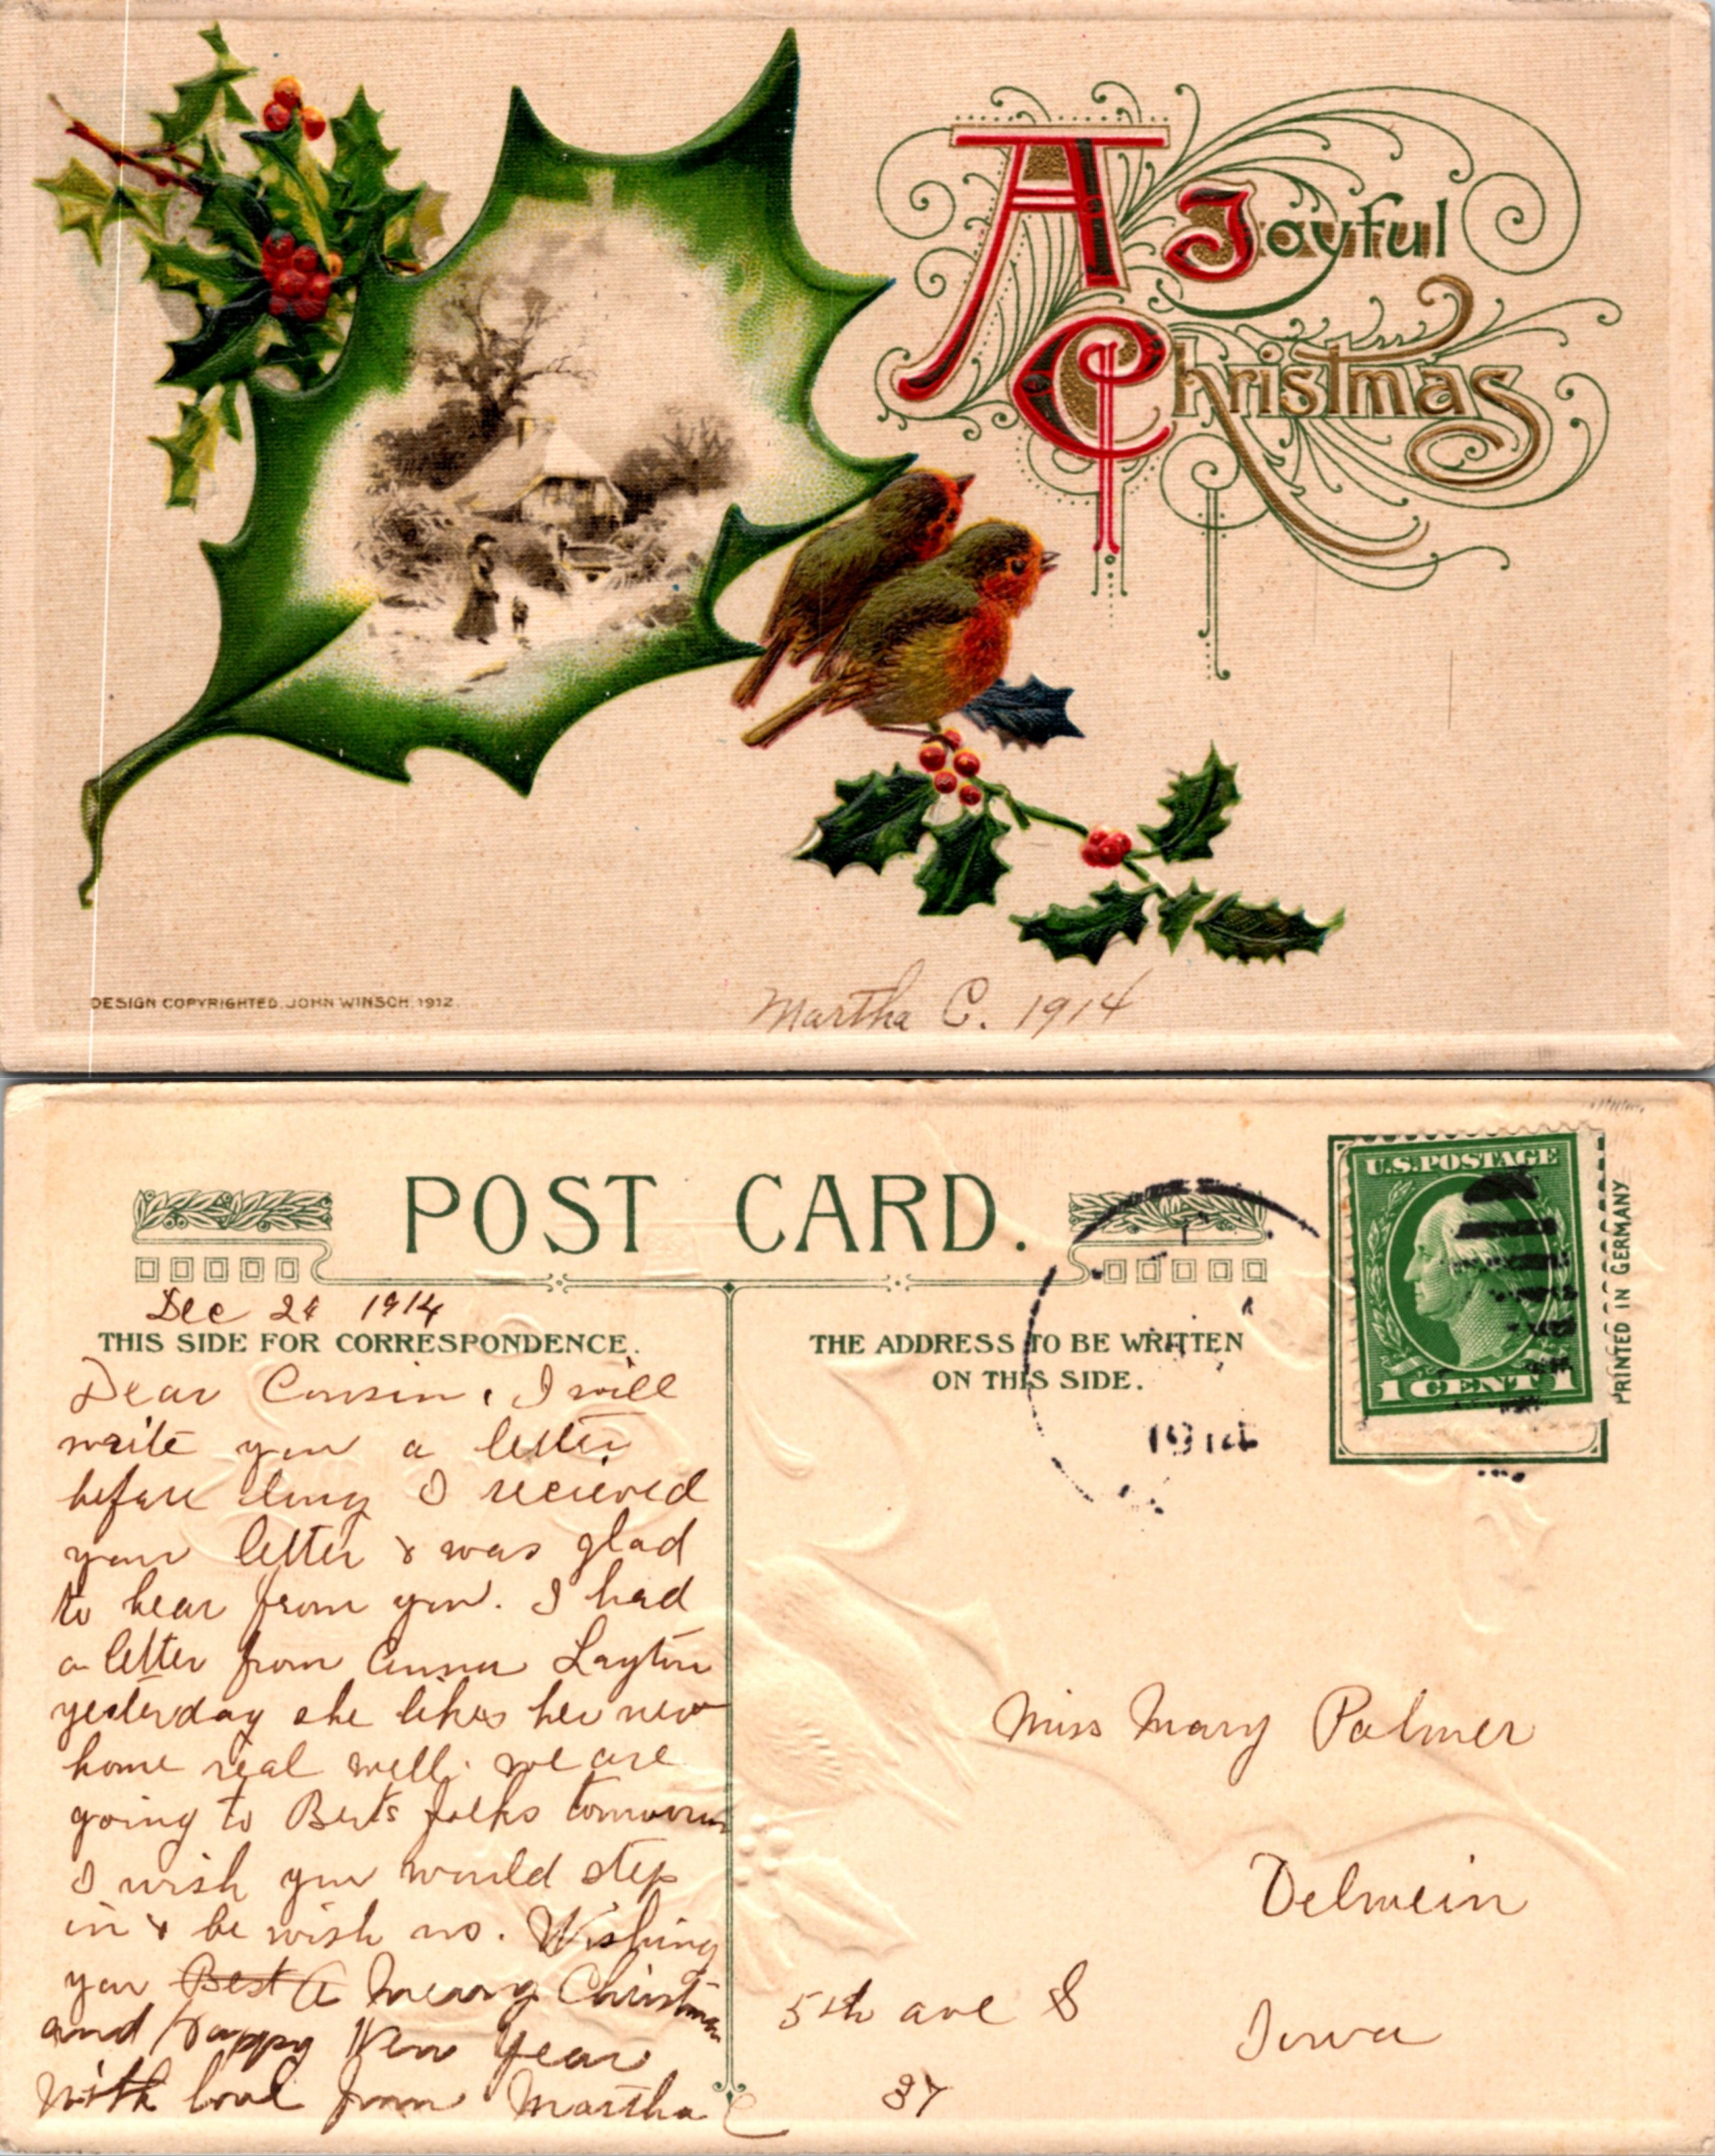 A Joyful
Christmas
DESIGN COPYRIGHTED, JOHN WINSCH, 1912.
Martha C. 1914
POST CARD.
U.S. POSTAGE
1 CENT 1
PRINTED IN GERMANY
1914
Dec 24 1914
THIS SIDE FOR CORRESPONDENCE.
Dear Cousin, I will
write you a letter
before long I recieved
your letter & was glad
to hear from you. I had
a letter from Anna Layton
yesterday she likes her new
home real well. we are
going to Berts folks tomorrow
I wish you would step
in & be wish us. Wishing
you Best A Merry Christmas
and Happy New Year
With love from Martha C
THE ADDRESS TO BE WRITTEN
ON THIS SIDE.
Miss Mary Palmer
Oelwein
5th ave S
Iowa
37